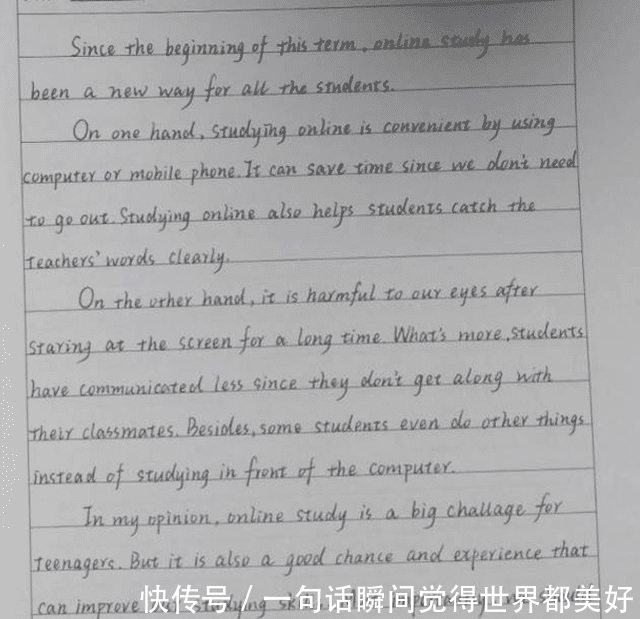 Since the beginning of this term, online study has
been a new way for all the students.
On one hand, studying online is convenient by using
computer or mobile phone. It can save time since we don't need
to go out. Studying online also helps students catch the
teachers' words clearly.
On the other hand, it is harmful to our eyes after
staring at the screen for a long time. What's more, students
have communicated less since they don't get along with
their classmates. Besides, some students even do other things
instead of studying in front of the computer.
In my opinion, online study is a big challage for
teenagers. But it is also a good chance and experience that
can improve studying
快传号 / 一句话瞬间觉得世界都美好